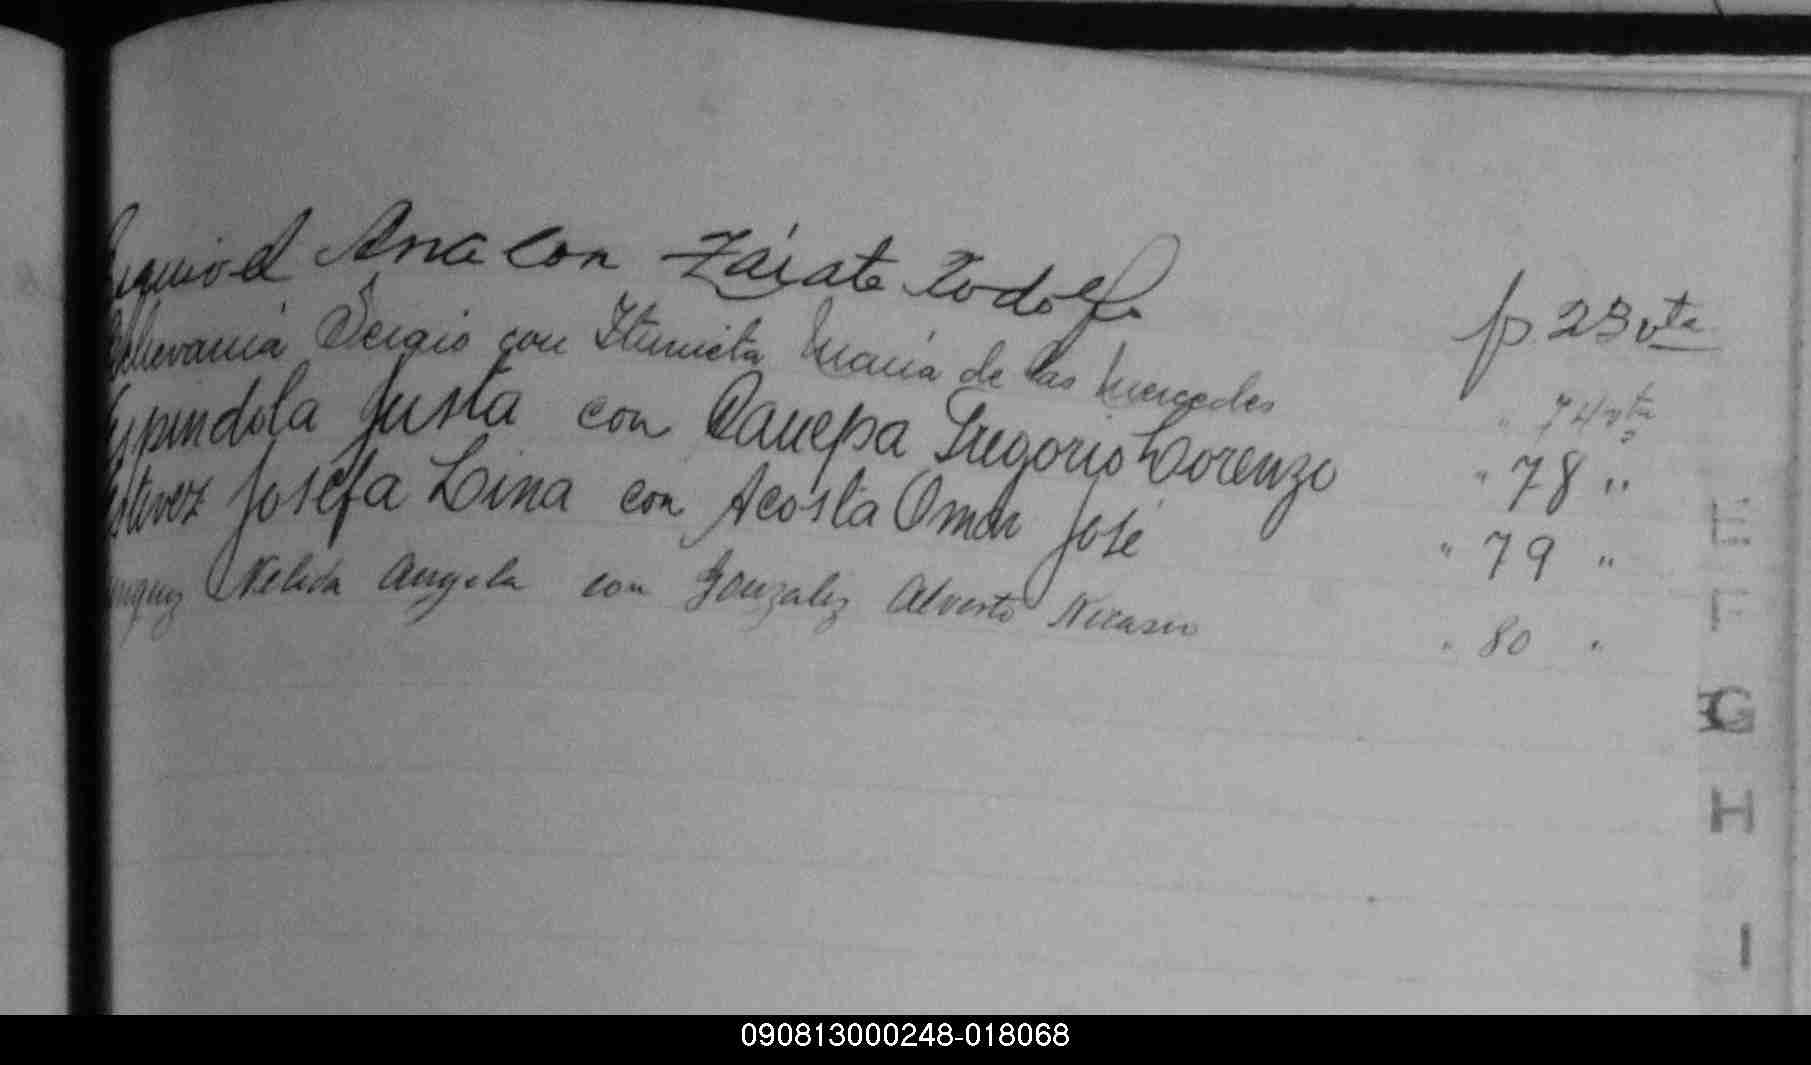 Esquivel Ana con Zárate Rodolfo p. 23 vta
Echevarria Sergio con Iturrieta Maria de las Mercedes " 74 vta
Espindola Justa con Canepa Gregorio Lorenzo " 78 "
Estevez Josefa Lina con Acosta Omar José " 79 "
Nelida Angela con Gonzalez Alverto Nicasio " 80 "
E
F
G
H
I
090813000248-018068